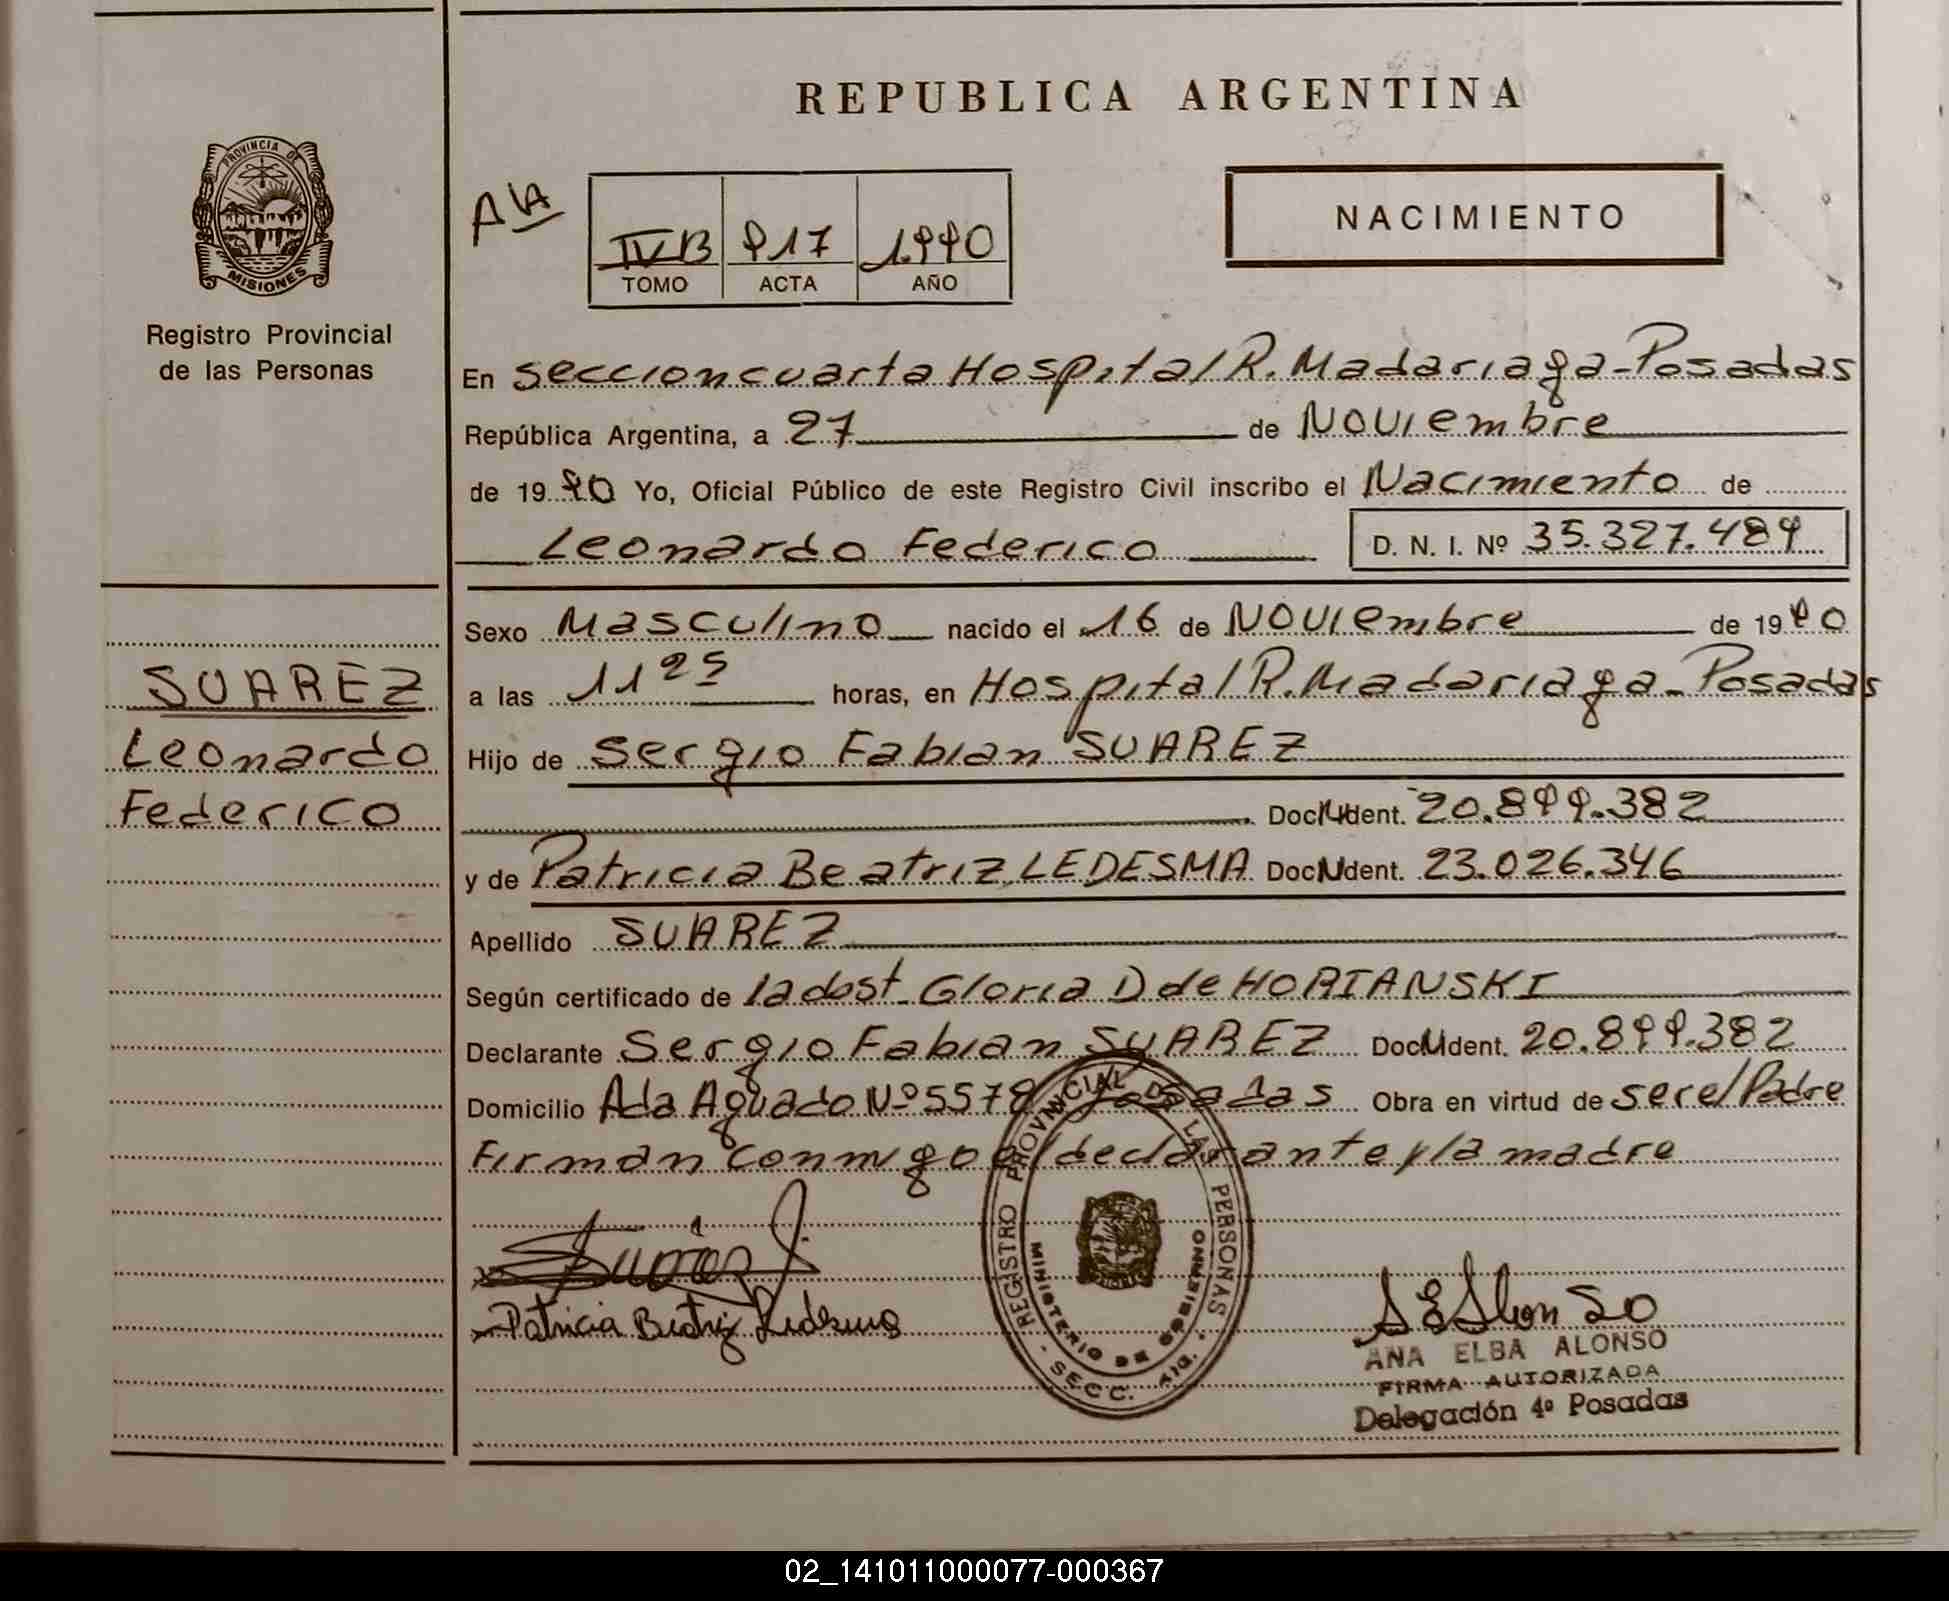 REPUBLICA ARGENTINA
PROVINCIA DE
MISIONES
Registro Provincial
de las Personas
IVB 917 1.990
TOMO ACTA AÑO
NACIMIENTO
En seccion cuarta Hospital R. Madariaga - Posadas
República Argentina, a 27 de Noviembre
de 1990 Yo, Oficial Público de este Registro Civil inscribo el Nacimiento de
Leonardo Federico D. N. I. Nº 35.327.489
SUAREZ
Leonardo
Federico
Sexo Masculino nacido el 16 de Noviembre de 1990
a las 11 25 horas, en Hospital R. Madariaga - Posadas
Hijo de Sergio Fabian SUAREZ
Doc. Ident. 20.899.382
y de Patricia Beatriz LEDESMA Doc. Ident. 23.026.346
Apellido SUAREZ
Según certificado de la obst. Gloria D de HORIANSKI
Declarante Sergio Fabian SUAREZ Doc. Ident. 20.899.382
Domicilio Ada Aguado Nº 5578 Posadas Obra en virtud de ser el Padre
Firman conmigo el declarante y la madre
Suarez
Patricia Beatriz Ledesma
REGISTRO PROVINCIAL DE LAS PERSONAS
MINISTERIO DE GOBIERNO
SECC.
A E Alonso
ANA ELBA ALONSO
FIRMA AUTORIZADA
Delegación 4º Posadas
02_141011000077-000367